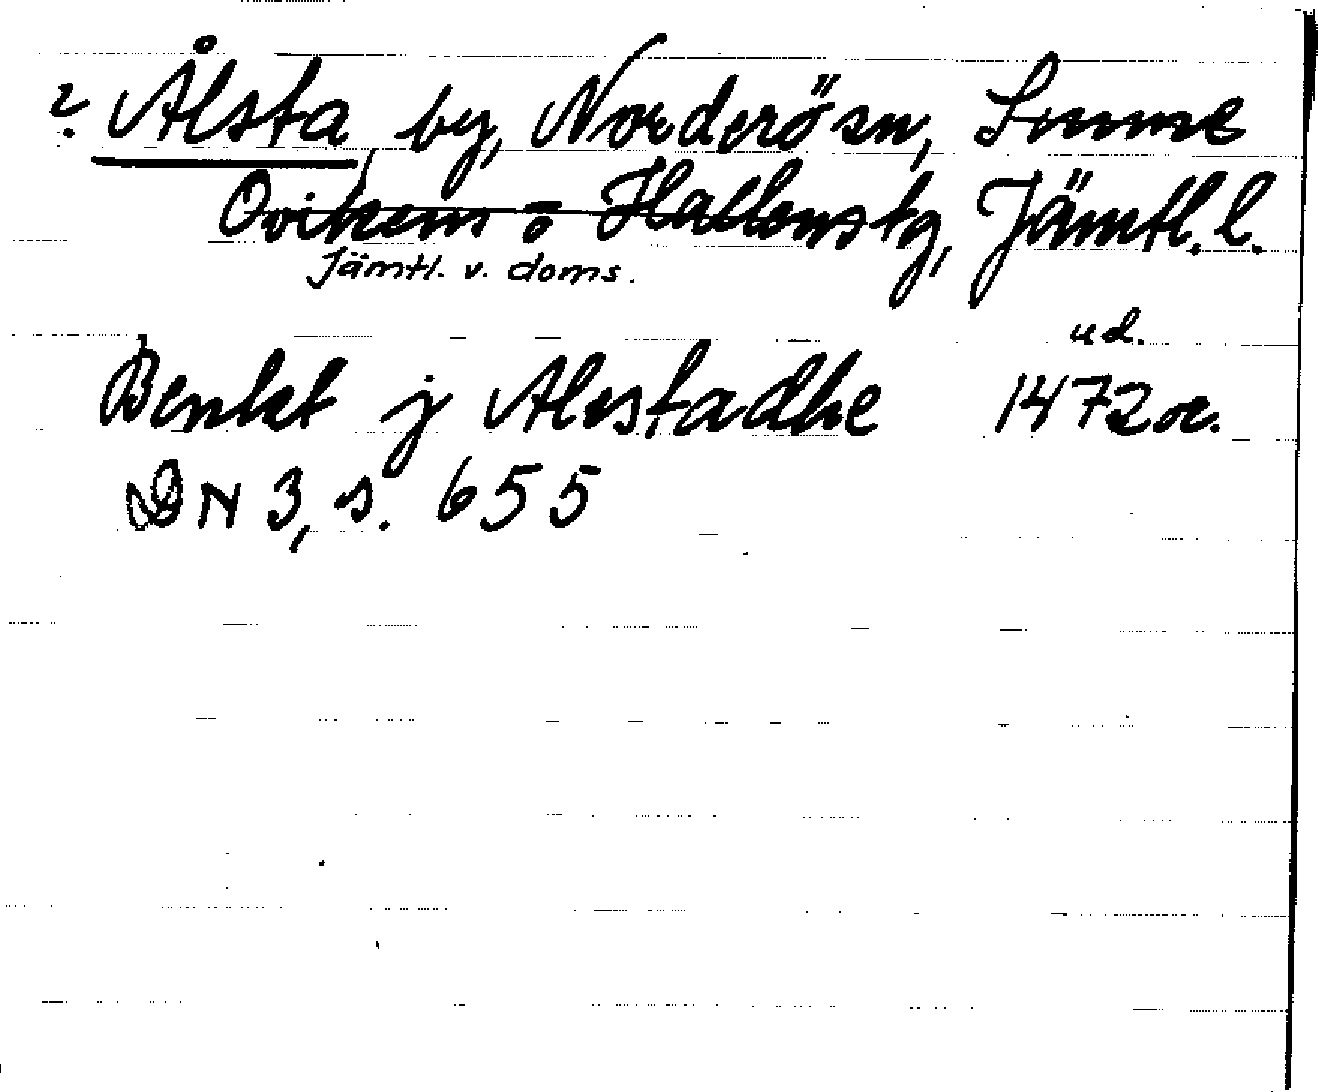 ? Ålsta, by, Norderö sn, Sunne
Ovikens o Hallens tg, Jämtl. l.
Jämtl. v. doms.
ud.
Benkt j Alestadhe 1472 or.
DN 3, s. 655